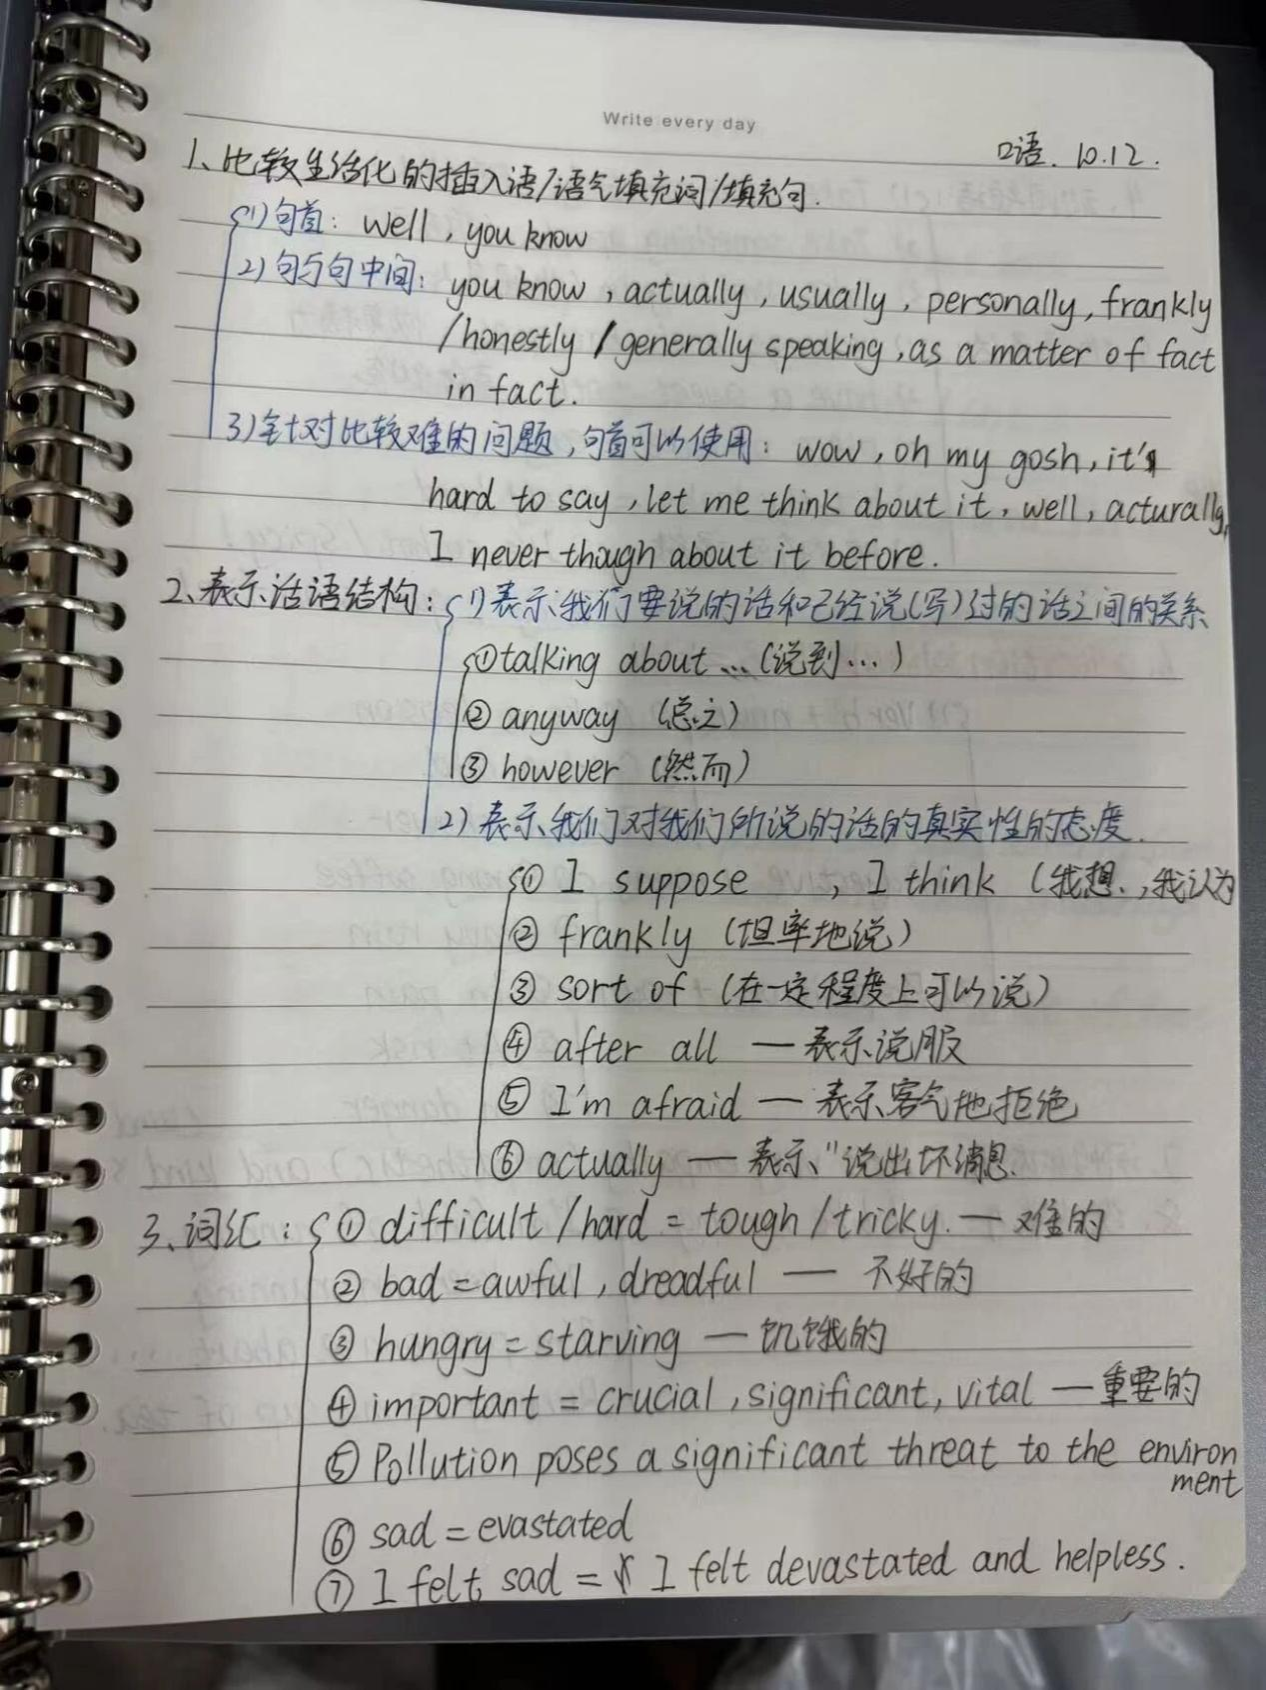 Write every day
口语. 10.12.
1、比较生活化的插入语/语气填充词/填充句.
1) 句首: well, you know
2) 句与句中间: you know, actually, usually, personally, frankly
/honestly/generally speaking, as a matter of fact
in fact.
3) 针对比较难的问题,句首可以使用: wow, oh my gosh, it's
hard to say, let me think about it, well, acturally,
I never though about it before.
2、表示话语结构: 1) 表示我们要说的话和已经说(写)过的话之间的关系
① talking about … (说到…)
② anyway (总之)
③ however (然而)
2) 表示我们对我们所说的话的真实性的态度.
① I suppose , I think (我想.,我认为
② frankly (坦率地说)
③ sort of (在一定程度上可以说)
④ after all — 表示说服
⑤ I'm afraid — 表示客气地拒绝
⑥ actually — 表示"说出坏消息.
3、词汇: ① difficult/hard = tough/tricky. — 难的
② bad = awful, dreadful — 不好的
③ hungry = starving — 饥饿的
④ important = crucial, significant, vital — 重要的
⑤ Pollution poses a significant threat to the environ
ment
⑥ sad = evastated
⑦ I felt sad = I felt devastated and helpless.